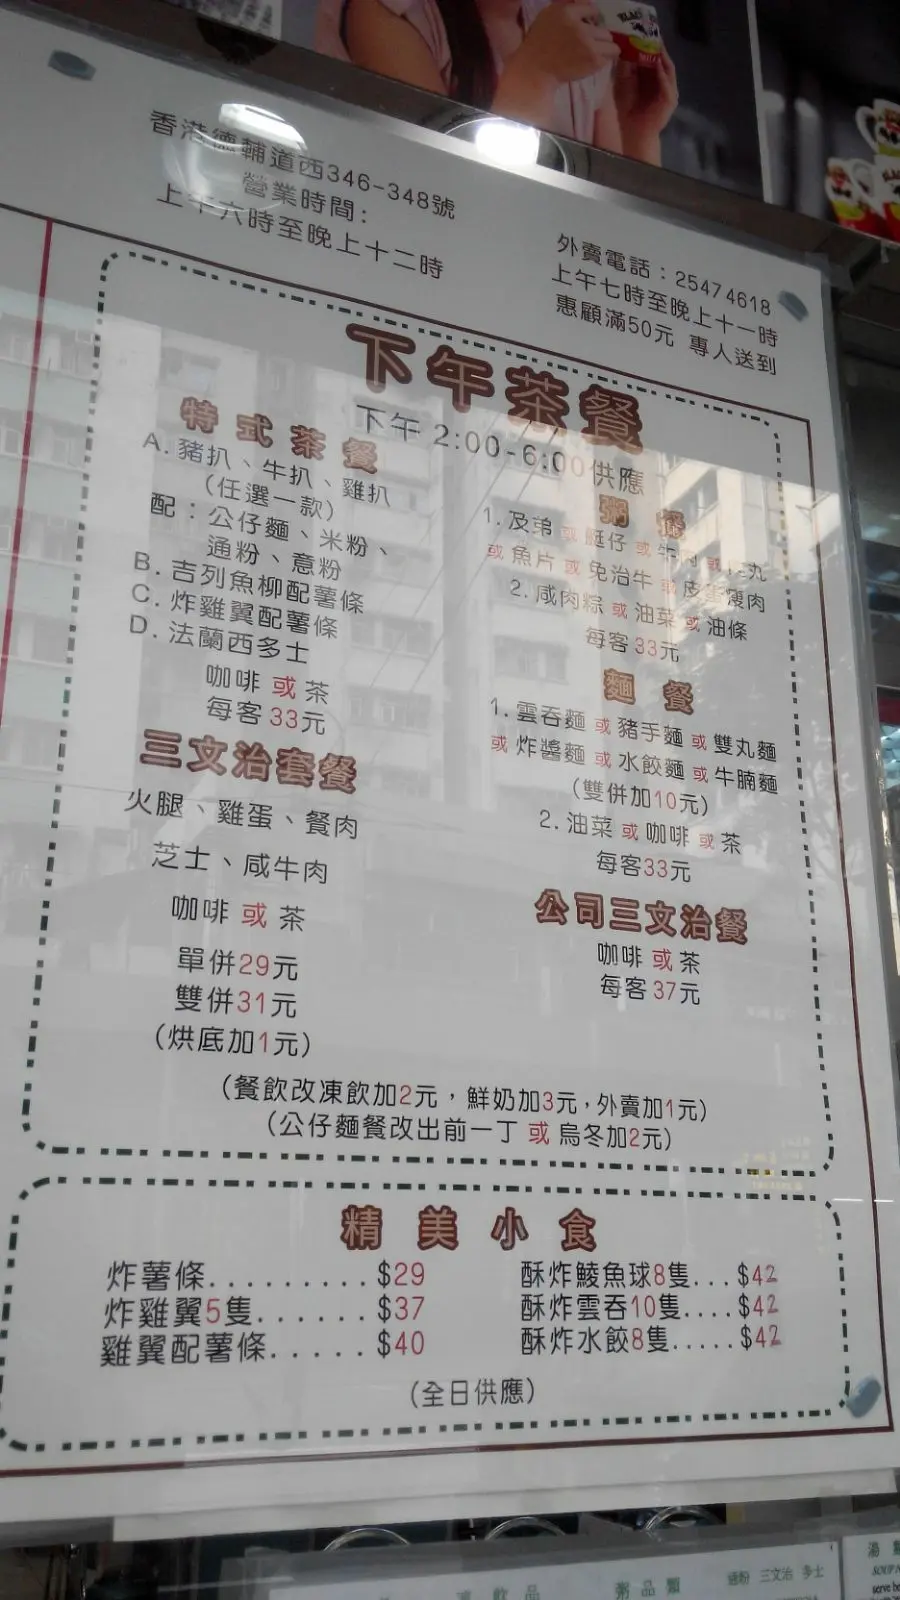 香港德輔道西346-348號
營業時間：
上午六時至晚上十二時
外賣電話：25474618
上午七時至晚上十一時
惠顧滿50元 專人送到
下午茶餐
下午 2:00-6:00供應
特式茶餐
A. 豬扒、牛扒、雞扒
(任選一款)
配：公仔麵、米粉、
通粉、意粉
B. 吉列魚柳配薯條
C. 炸雞翼配薯條
D. 法蘭西多士
咖啡 或 茶
每客 33元
三文治套餐
火腿、雞蛋、餐肉
芝士、咸牛肉
咖啡 或 茶
單併29元
雙併31元
(烘底加1元)
粥 餐
1. 及弟 或 艇仔 或 牛肉 或 丸
或 魚片 或 免治牛 或 皮蛋瘦肉
2. 咸肉粽 或 油菜 或 油條
每客 33元
麵 餐
1. 雲吞麵 或 豬手麵 或 雙丸麵
或 炸醬麵 或 水餃麵 或 牛腩麵
(雙併加10元)
2. 油菜 或 咖啡 或 茶
每客33元
公司三文治餐
咖啡 或 茶
每客 37元
(餐飲改凍飲加2元，鮮奶加3元，外賣加1元)
(公仔麵餐改出前一丁 或 烏冬加2元)
精美小食
炸薯條.........$29
炸雞翼5隻......$37
雞翼配薯條.....$40
酥炸鯪魚球8隻...$42
酥炸雲吞10隻....$42
酥炸水餃8隻.....$42
(全日供應)
飲品
粥品類
通粉 三文治 多士
湯